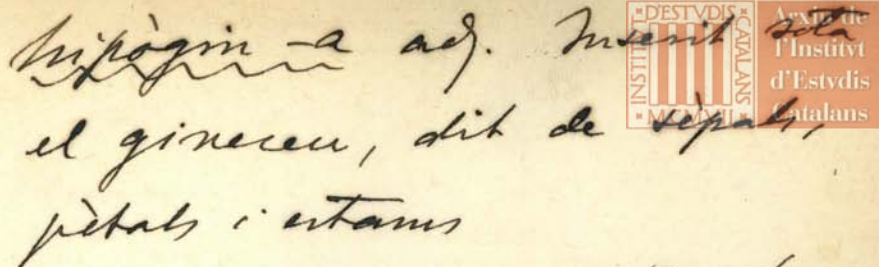 hipògin -a adj. Inserit sota
el gineceu, dit de sèpals,
pètals i estams
INSTITVT D'ESTVDIS CATALANS
MCMVII
Arxiu de
l'Institvt
d'Estvdis
Catalans